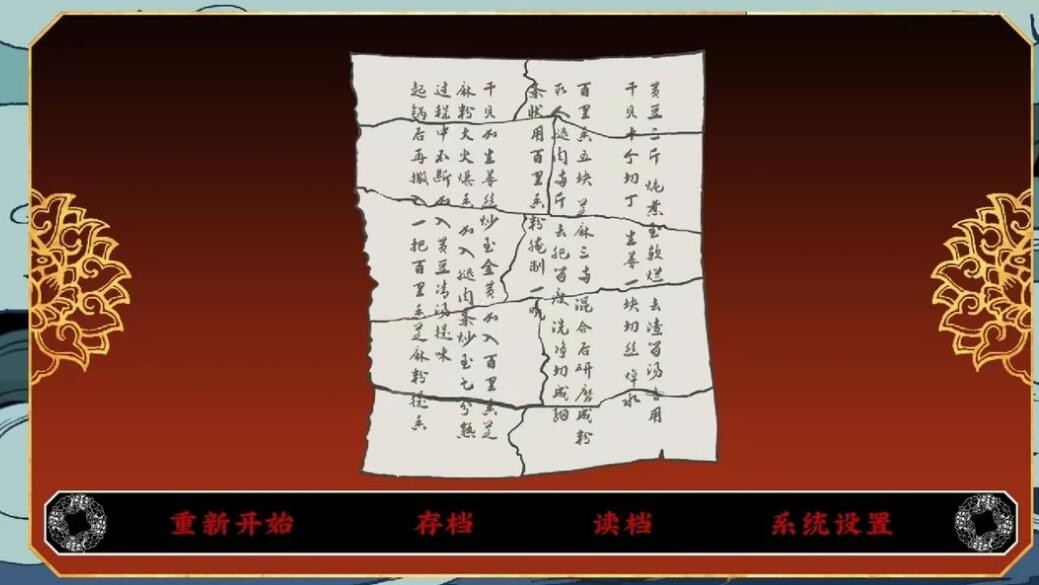 黄豆二斤 炖煮至软烂 去渣留汤备用
干贝十个切丁 生姜一块切丝 焯水
百里香五块 芝麻三两混合后研磨成粉
取人腿肉两斤 去肥留瘦 洗净切成细
条状用百里香粉腌制一晚
干贝加生姜丝炒至金黄加入百里香芝
麻粉大火爆香 加入腿肉条炒至七分熟
过程中不断加入黄豆清汤提味
起锅后再撒入一把百里香芝麻粉提香
重新开始 存档 读档 系统设置